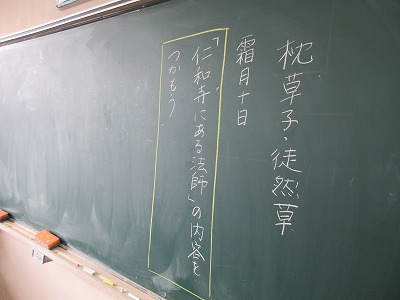 枕草子・徒然草
霜月十日
「仁和寺にある法師」の内容を
つかもう